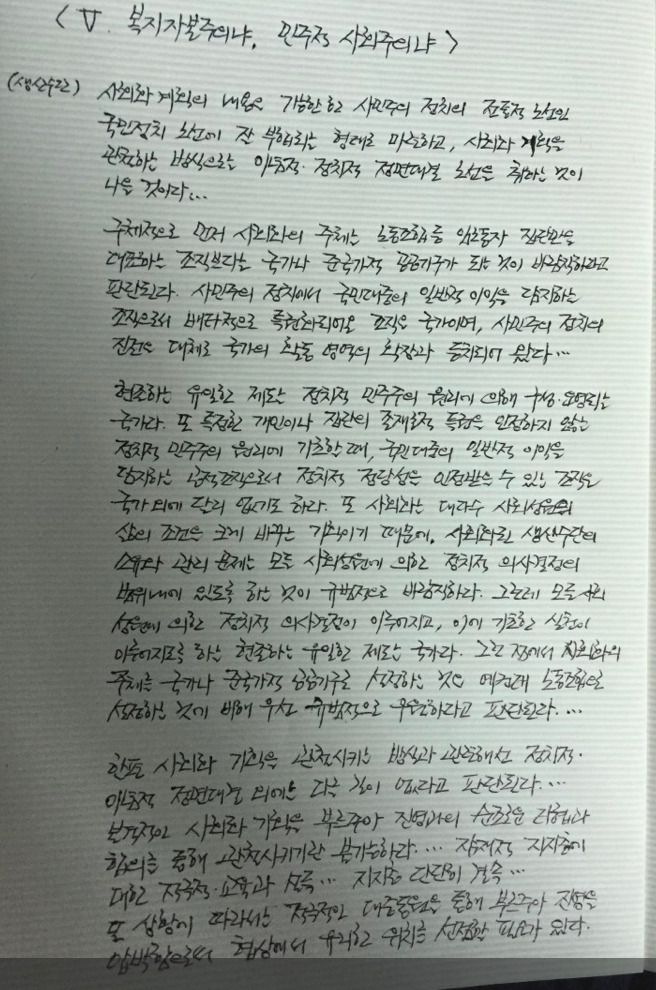 < Ⅴ. 복지자본주의냐, 민주적 사회주의냐 >
(생산수단) 사회화 계획의 내용은 가능한 한 사민주의 정치의 전통적 노선인
국민정치 노선에 잘 부합되는 형태로 마련하고, 사회화 계획을
관철하는 방식으로는 이데올로기적·정치적 정면대결 노선을 취하는 것이
나을 것이다...
구체적으로 먼저 사회화의 주체는 노동조합 등 임노동자 집단만을
대표하는 조직보다는 국가나 준국가적 공공기구가 되는 것이 바람직하다고
판단된다. 사민주의 정치에서 국민대중의 일반적 이익을 담지하는
조직으로서 배타적으로 특권화되어온 조직은 국가이며, 사민주의 정치의
진전은 대체로 국가의 활동 영역의 확장과 등치되어 왔다...
현존하는 유일한 제도는 정치적 민주주의 원리에 의해 구성·운영되는
국가다. 또 특정한 개인이나 집단의 존재론적 특권을 인정하지 않는
정치적 민주주의 원리에 기초할 때, 국민대중의 일반적 이익을
담지하는 공적조직으로서 정치적 정당성을 인정받을 수 있는 조직은
국가 외에 달리 없기도 하다. 또 사회화는 대다수 사회성원의
삶의 조건을 크게 바꾸는 기획이기 때문에, 사회화된 생산수단의
소유와 관리 문제는 모든 사회성원에 의한 정치적 의사결정의
범위내에 있도록 하는 것이 규범적으로 바람직하다. 그런데 모든 사회
성원에 의한 정치적 의사결정이 이루어지고, 이에 기초한 실천이
이루어지도록 하는 현존하는 유일한 제도는 국가다. 그런 점에서 사회화의
주체를 국가나 준국가적 공공기구로 설정하는 것은 예컨대 노동조합으로
설정하는 것에 비해 우선 규범적으로 우월하다고 판단된다. ...
한편 사회화 기획을 관철시키는 방식과 관련해선 정치적·
이데올로기적 정면대결 외에는 다른 길이 없다고 판단된다. ...
본격적인 사회화 기획을 부르주아 진영과의 순조로운 타협과
합의를 통해 관철시키기란 불가능하다. ... 잠재적 지지층에
대한 적극적 교육과 설득 ... 지지층 단단히 결속 ...
또 상황에 따라서는 적극적인 대중동원을 통해 부르주아 진영을
압박함으로써 협상에서 유리한 위치를 선점할 필요가 있다.